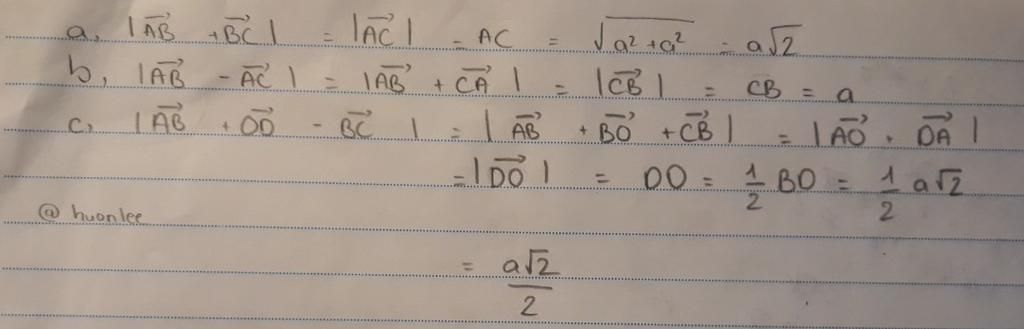 a, |AB⃗ + BC⃗| = |AC⃗| = AC = √(a² + a²) = a√2
b, |AB⃗ - AC⃗| = |AB⃗ + CA⃗| = |CB⃗| = CB = a
c, |AB⃗ + OD⃗ - BC⃗| = |AB⃗ + BO⃗ + CB⃗| = |AO⃗ + DA⃗|
= |DO⃗| = DO = 1/2 BD = 1/2 a√2
@huonlee
= a√2/2